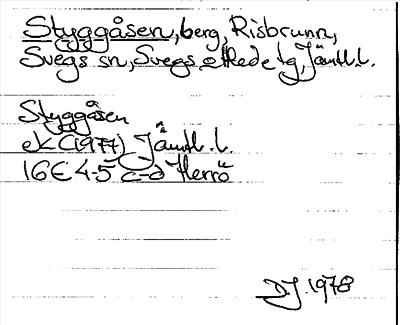 Styggåsen, berg, Risbrunn,
Svegs sn, Svegs o Hede tg, Jämtl. l.
Styggåsen
ek (1977) Jämtl. l.
16E 4-5 c-d Herrö
DJ 1978